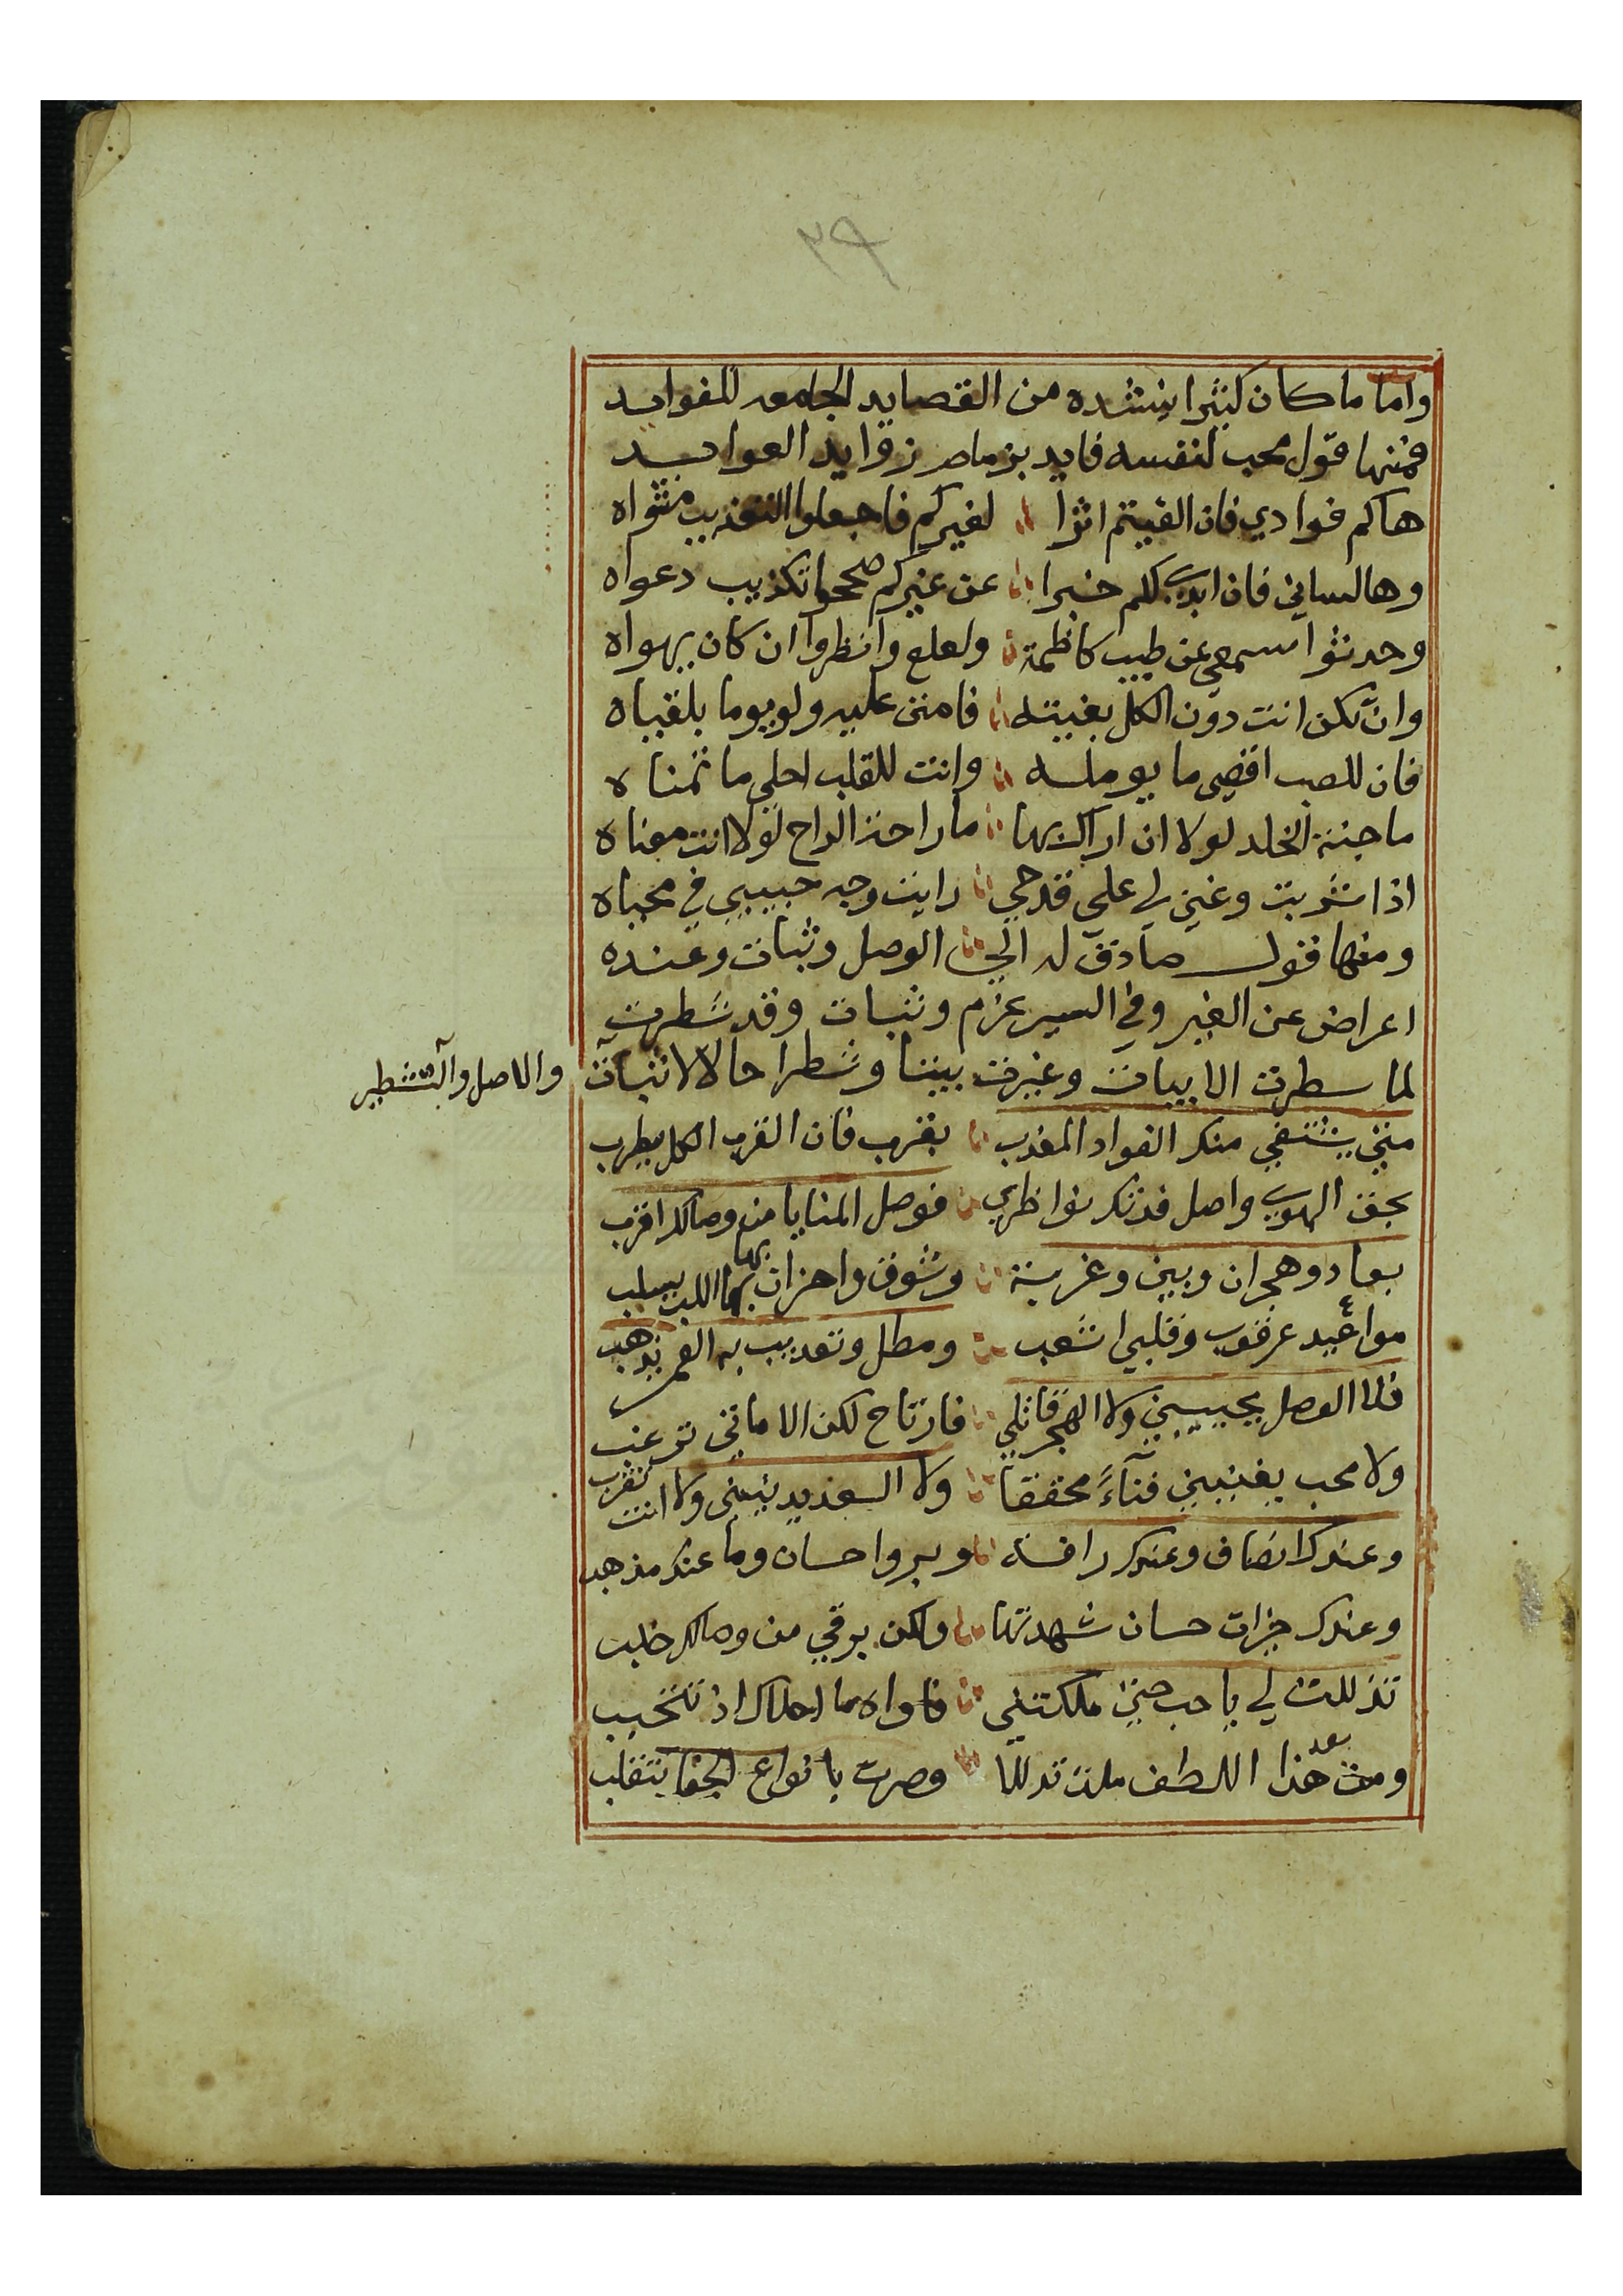 ٣٩
واما ما كان كثيرا ينشده من القصايد الجامعه للفوايد
فمنها قول محب لنفسه قايد بزمام زوايد العوايد
هاكم فوادي فان الفيتم اثرا لغيركم فاجعلوا التعذيب مثواه
وها لساني فان ابدى لكم خبرا عن غيركم صححوا تكذيب دعواه
وحدثوا سمعي عن طيب كاظمة ولعلع وانظروا ان كان يهواه
وان تكن انت دون الكل بغيته فامنن عليه ولو يوما بلقياه
فان للصب اقصى ما يومله وانت للقلب احلى ما تمناه
ما جنة الخلد لولا ان اراك بها ما راحة الراح لولا انت معناه
اذا شربت وغنى لي على قدحي رايت وجه حبيبي في محياه
ومنها قول صادق له الى الوصل وثبات وعنده
اعراض عن الغير وفي السير عزم وثبات وقد شطرت
لما سطرت الابيات وغيرت بيتا وشطرا حال الاثبات
والاصل والتشطير
متى يشتفي منك الفواد المعذب بقرب فان القرب الكل يطرب
بحق الهوى واصل فدتك نواظري فوصل المنايا من وصالك اقرب
بعاد وهجران وبين وغربة وشوق واحزان بها اللب يسلب
مواعيد عرقوب وقلبي اشعب ومطل وتعذيب به العمر يذهب
فلا الوصل يحييني ولا الهجر قاتلي فارتاح لكن الاماني ترغب
ولا محب يغنيني فنآءً محققا ولا انت تقرب
وعندك انصاف وعندك رافة وبر واحسان وما عنك مذهب
وعندك خيرات حسان شهدتها ولكن برقي من وصالك خلب
تذللت لي يا حب حتى ملكتني فاواه ما احلاك اذ تتحبب
ومن بعد هذا اللطف ملت تدللا وصرت بانواع الجفا تتقلب